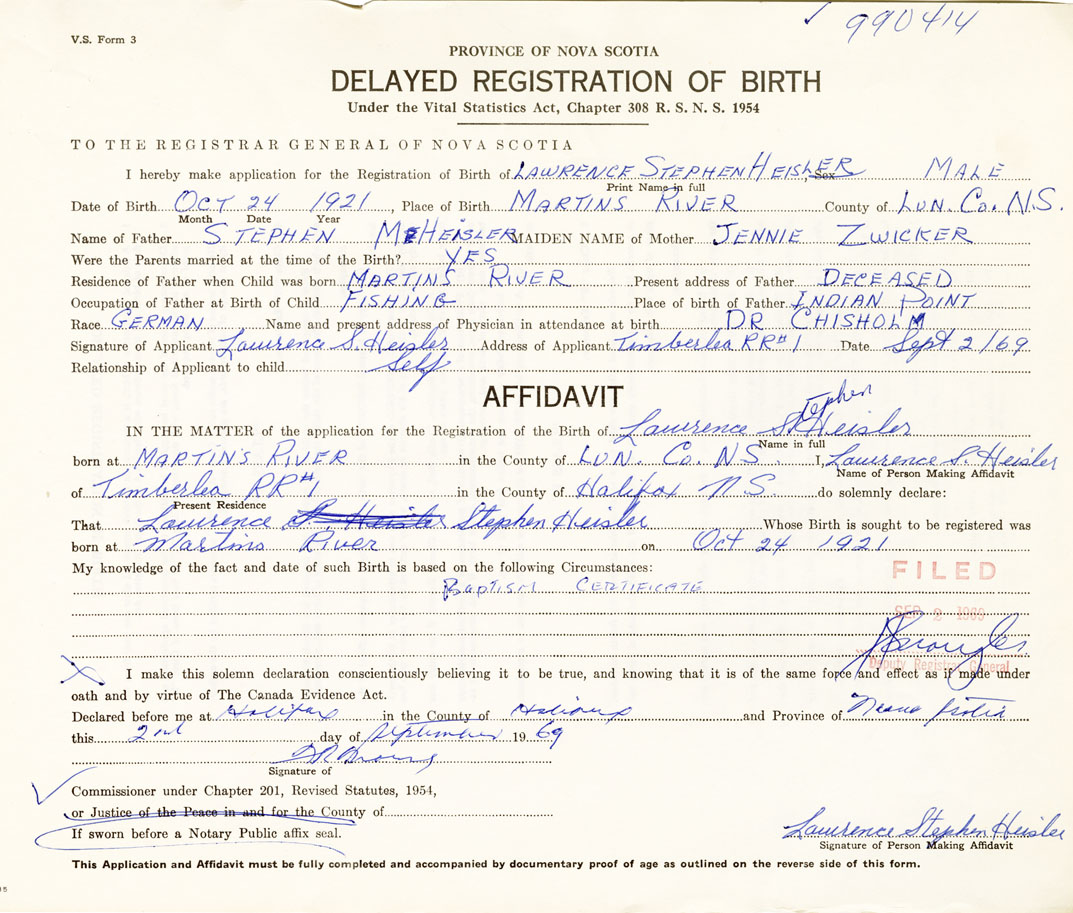 990414
V.S. Form 3
PROVINCE OF NOVA SCOTIA
DELAYED REGISTRATION OF BIRTH
Under the Vital Statistics Act, Chapter 308 R. S. N. S. 1954
TO THE REGISTRAR GENERAL OF NOVA SCOTIA
I hereby make application for the Registration of Birth of LAWRENCE STEPHEN HEISLER Sex MALE
Print Name in full
Date of Birth OCT 24 1921, Place of Birth MARTINS RIVER County of LUN. CO. N.S.
Month Date Year
Name of Father STEPHEN HEISLER MAIDEN NAME of Mother JENNIE ZWICKER
Were the Parents married at the time of the Birth? YES
Residence of Father when Child was born MARTINS RIVER Present address of Father DECEASED
Occupation of Father at Birth of Child FISHING Place of birth of Father INDIAN POINT
Race GERMAN Name and present address of Physician in attendance at birth DR CHISHOLM
Signature of Applicant Lawrence S. Heisler Address of Applicant Timberlea RR#1 Date Sept 2/69
Relationship of Applicant to child Self
AFFIDAVIT
IN THE MATTER of the application for the Registration of the Birth of Lawrence Stephen Heisler
Name in full
born at MARTIN'S RIVER in the County of LUN. CO. NS I, Lawrence S. Heisler
Name of Person Making Affidavit
of Timberlea RR#1 in the County of Halifax NS do solemnly declare:
Present Residence
That Lawrence Stephen Heisler Whose Birth is sought to be registered was
born at Martins River on Oct 24 1921
My knowledge of the fact and date of such Birth is based on the following Circumstances:
BAPTISM CERTIFICATE
FILED
SEP 2 1969
Deputy Registrar General
I make this solemn declaration conscientiously believing it to be true, and knowing that it is of the same force and effect as if made under
oath and by virtue of The Canada Evidence Act.
Declared before me at Halifax in the County of Halifax and Province of Nova Scotia
this 2nd day of September 1969
Signature of
Commissioner under Chapter 201, Revised Statutes, 1954,
or Justice of the Peace in and for the County of
If sworn before a Notary Public affix seal.
Lawrence Stephen Heisler
Signature of Person Making Affidavit
This Application and Affidavit must be fully completed and accompanied by documentary proof of age as outlined on the reverse side of this form.